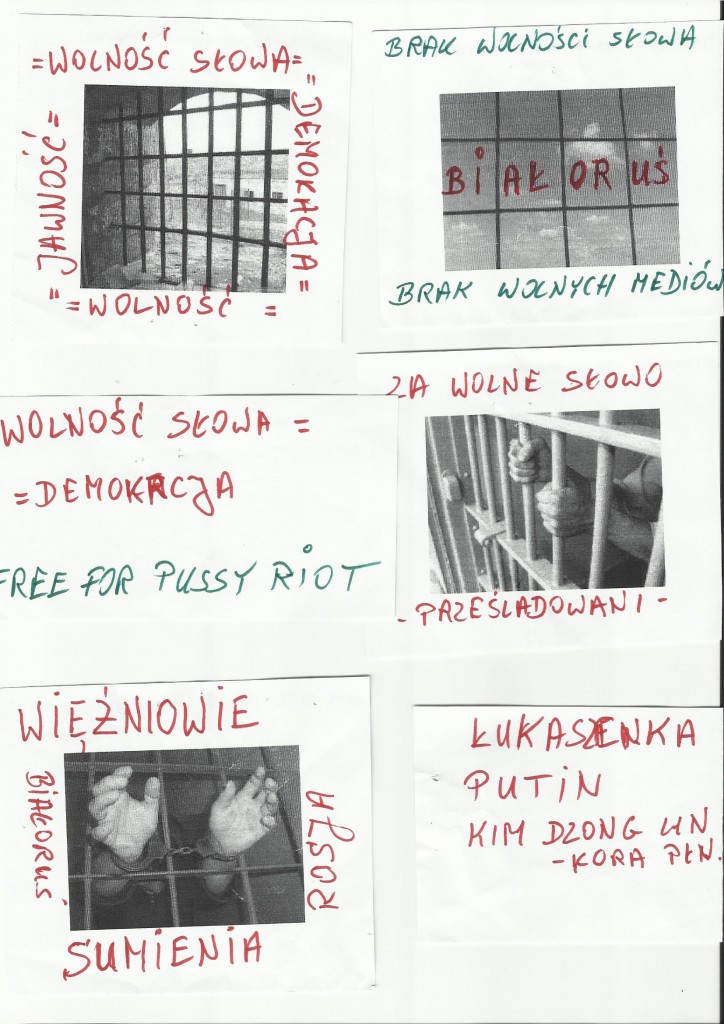 =WOLNOŚĆ SŁOWA=
=DEMOKACJA=
JAWNOŚĆ=
"=WOLNOŚĆ =
BRAK WOLNOŚCI SŁOWA
BIAŁORUŚ
BRAK WOLNYCH MEDIÓW
WOLNOŚĆ SŁOWA =
=DEMOKRACJA
FREE FOR PUSSY RIOT
ZA WOLNE SŁOWO
-PRZEŚLADOWANI-
WIĘŹNIOWIE
BIAŁORUŚ
ROSJA
SUMIENIA
ŁUKASZENKA
PUTIN
KIM DZONG UN
-KORA PŁN.